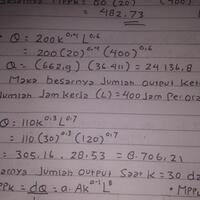 = 482.73
• Q = 200K^0,4 L^0,6
= 200 (20)^0,4 (400)^0,6
= (662,9) (36.411) = 24.136,8
Maka besarnya Jumlah output
Jumlah Jam kerja (L) = 400 Jam Per
= 110K^0,3 L^0,7
= 110 (30)^0,3 (120)^0,7
= 305,16 . 28,53 = 8.706,21
Jumlah Output Saat K = 30
= dQ = a. AK^a-1 L^B